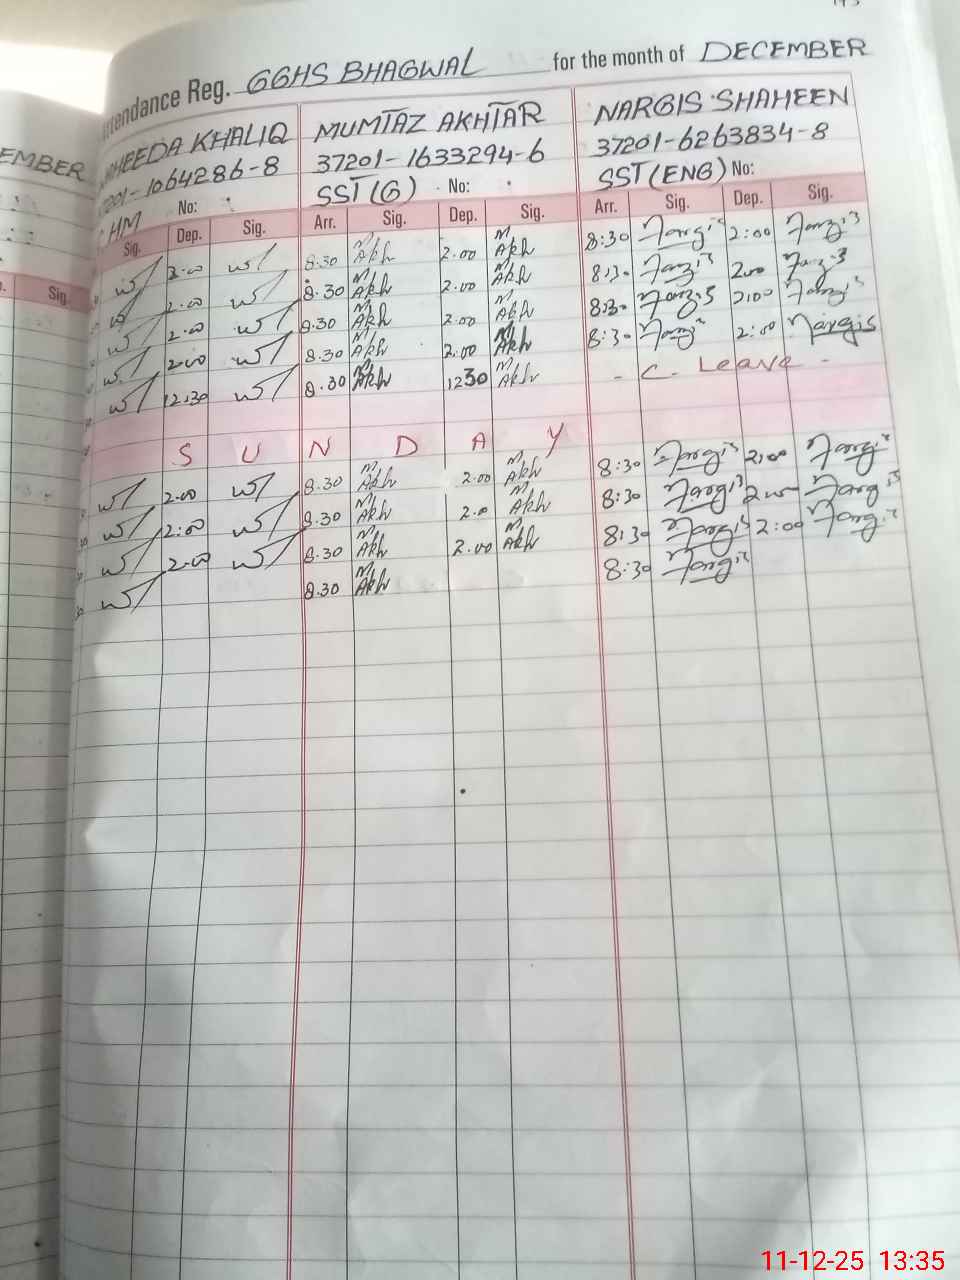 Attendance Reg. GGHS BHAGWAL for the month of DECEMBER
EMBER
HEEDA KHALIQ MUMTAZ AKHTAR NARGIS SHAHEEN
7201-1064286-8 37201-1633294-6 37201-6263834-8
HM No: SST(G) No: SST(ENG) No:
Sig. Sig. Dep. Sig. Arr. Sig. Dep. Sig. Arr. Sig. Dep. Sig.
2.00 8.30 M. Akh 2.00 M. Akh 8:30 Nargis 2:00 Nargis
2.00 8.30 M. Akh 2.00 M. Akh 8:30 Nargis 2:00 Nargis
2.00 8.30 M. Akh 2.00 M. Akh 8:30 Nargis 2:00 Nargis
2.00 8.30 M. Akh 2.00 M. Akh 8:30 Nargis 2:00 Nargis
12:30 8.30 M. Akh 1230 M. Akh - C. Leave -
S U N D A Y
2.00 8.30 M. Akh 2.00 M. Akh 8:30 Nargis 2:00 Nargis
2:00 8.30 M. Akh 2.0 M. Akh 8:30 Nargis 2:00 Nargis
2.00 8.30 M. Akh 2.00 M. Akh 8:30 Nargis 2:00 Nargis
8.30 M. Akh 8:30 Nargis
11-12-25 13:35